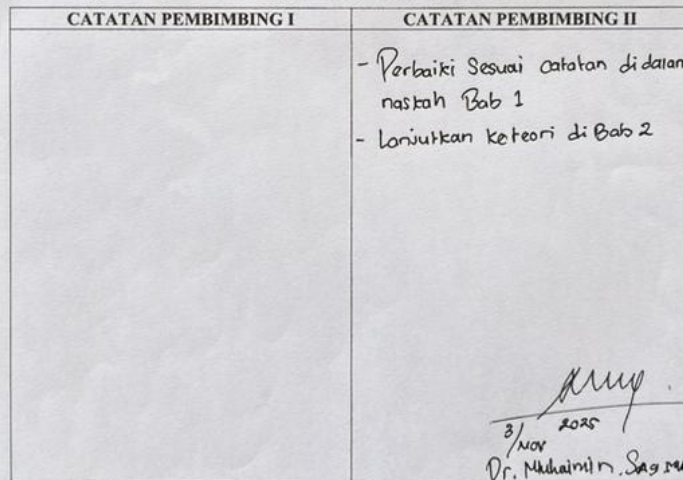 CATATAN PEMBIMBING I
CATATAN PEMBIMBING II
- Perbaiki Sesuai catatan didalam
naskah Bab 1
- Lanjutkan keteori di Bab 2
3/Nov 2025
Dr. Muhaimin.